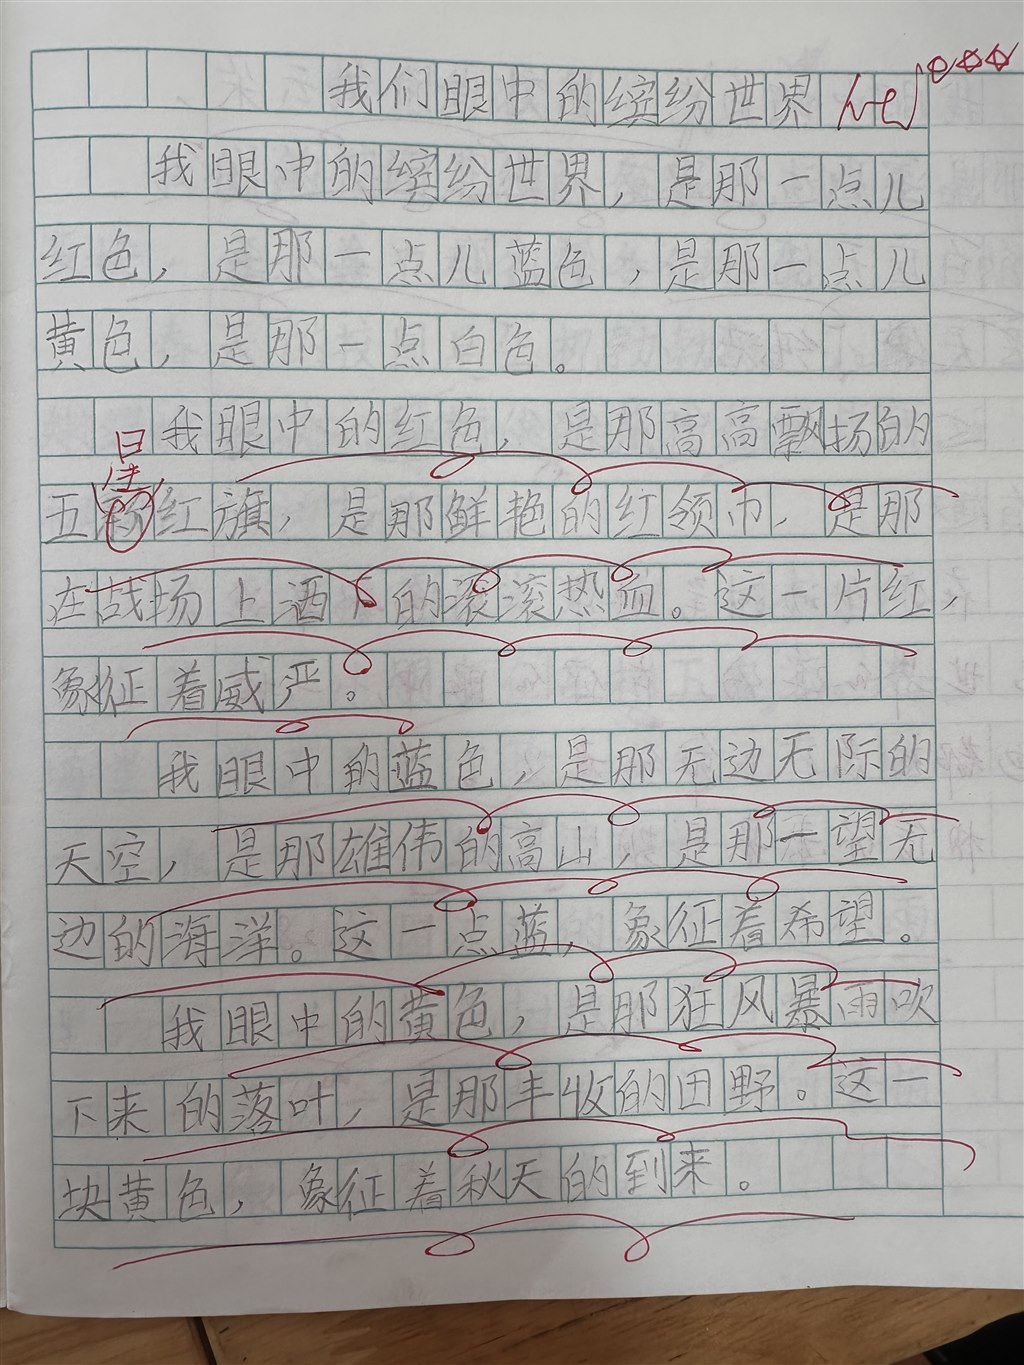 我们眼中的缤纷世界
我眼中的缤纷世界，是那一点儿
红色，是那一点儿蓝色，是那一点儿
黄色，是那一点白色。
我眼中的红色，是那高高飘扬的
星
五红旗，是那鲜艳的红领巾，是那
在战场上洒下的滚滚热血。这一片红，
象征着威严。
我眼中的蓝色，是那无边无际的
天空，是那雄伟的高山，是那一望无
边的海洋。这一点蓝，象征着希望。
我眼中的黄色，是那狂风暴雨吹
下来的落叶，是那丰收的田野。这一
块黄色，象征着秋天的到来。